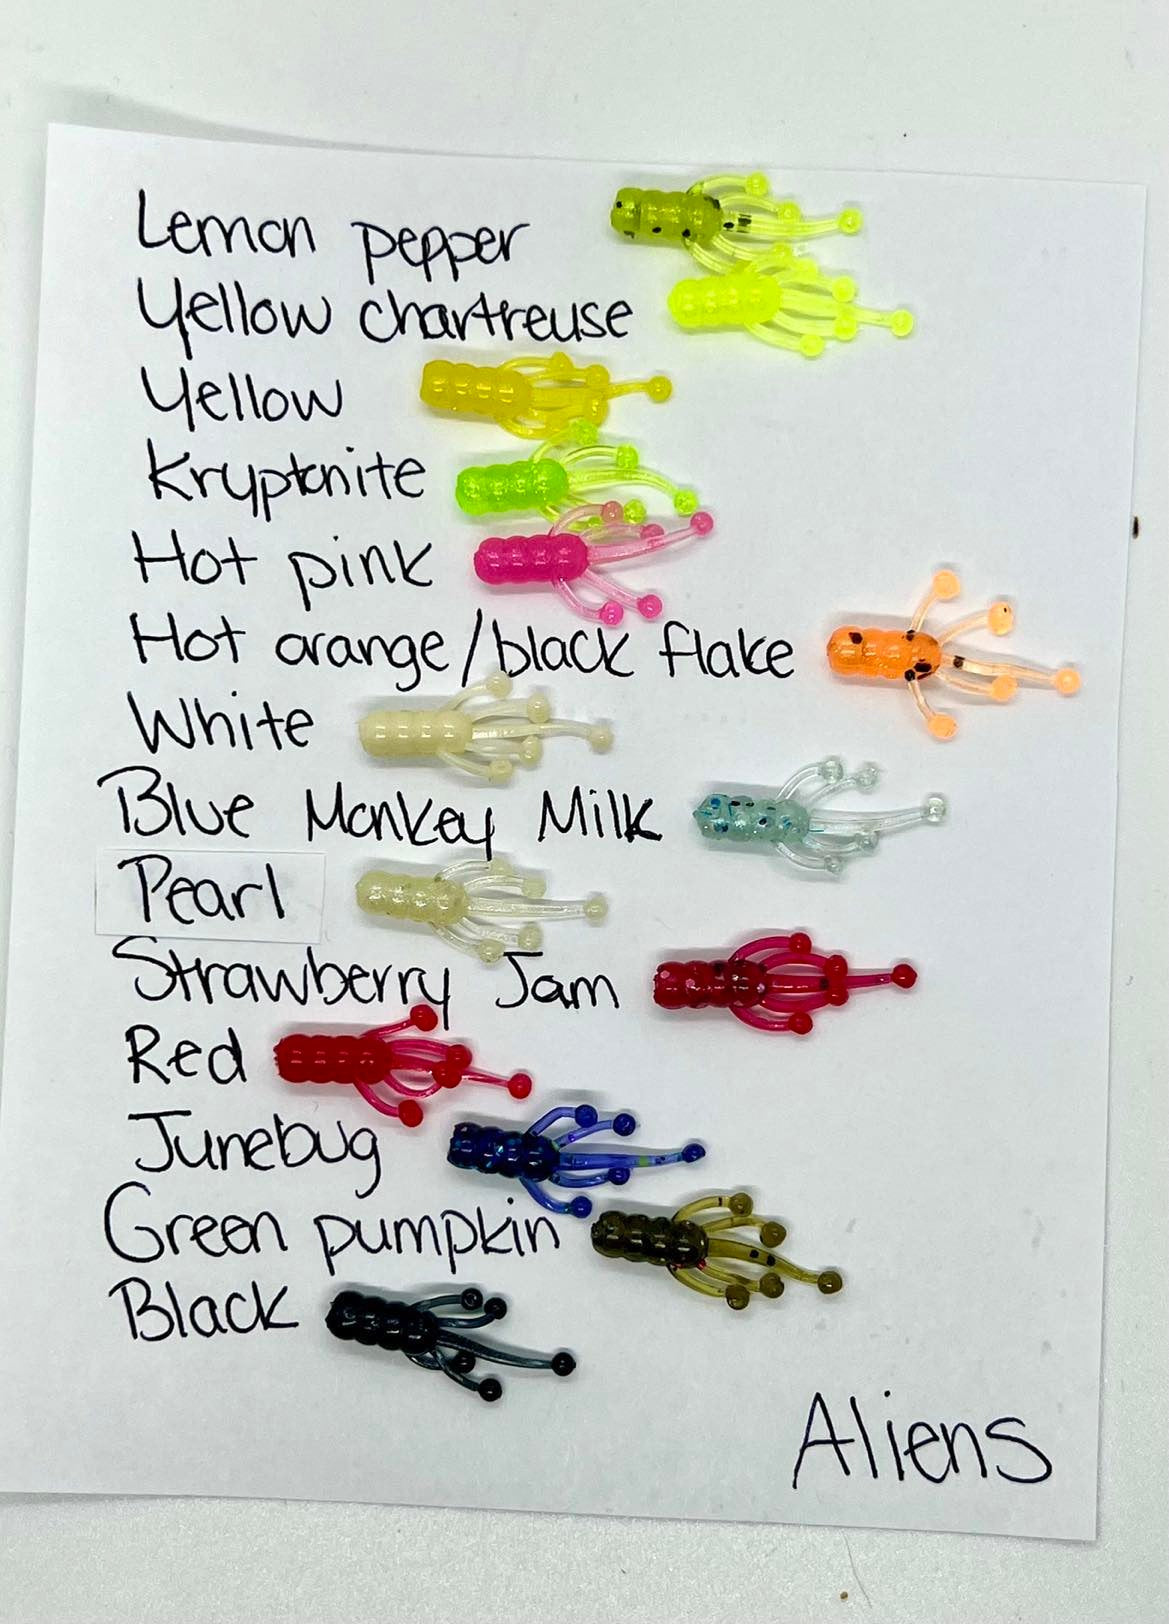 Lemon pepper
Yellow chartreuse
Yellow
Kryptonite
Hot pink
Hot orange/black flake
White
Blue Monkey Milk
Pearl
Strawberry Jam
Red
Junebug
Green pumpkin
Black
Aliens